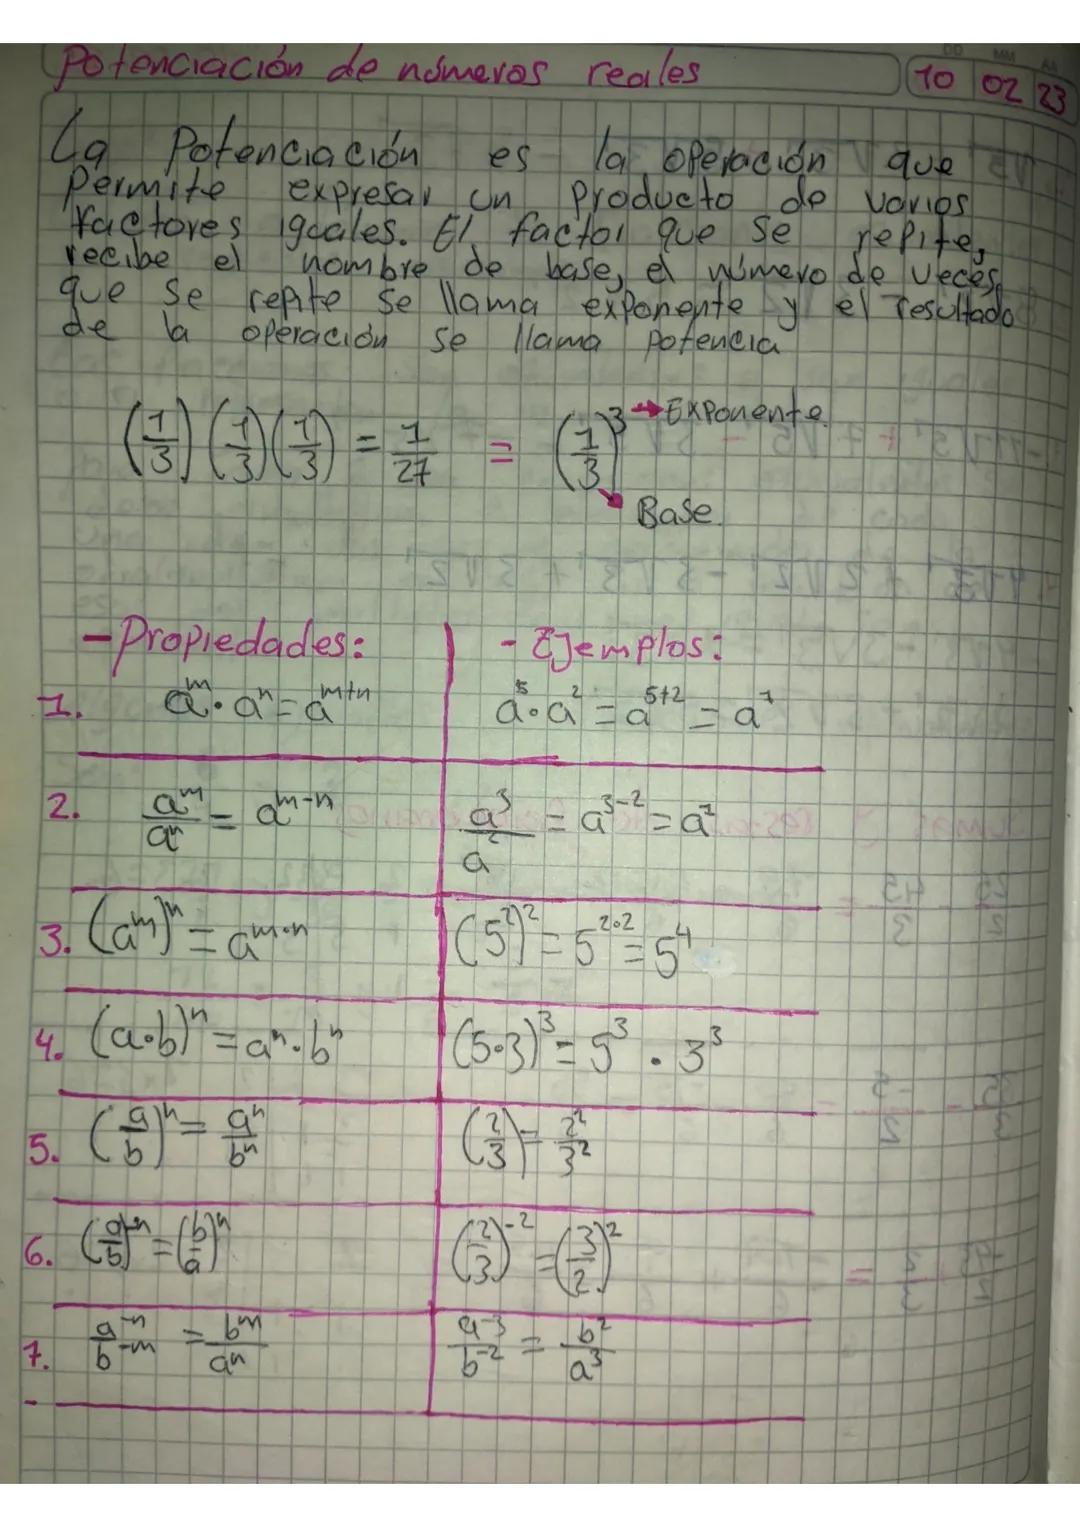 Potenciación de números reales
DD MM AA
10 02 23
La Potenciación es la operación que
permite expresar un producto de varios
factores iguales. El factor que se repite,
recibe el nombre de base, el número de veces,
que se repite se llama exponente y el resultado
de la operación se llama potencia
(1/3) (1/3) (1/3) = 1/27 = (1/3)³ → Exponente.
Base.
- Propiedades: - Ejemplos:
1. a^m · a^n = a^(m+n) a^5 · a^2 = a^(5+2) = a^7
2. a^m/a^n = a^(m-n) a^3/a^2 = a^(3-2) = a^1
3. (a^m)^n = a^(m·n) (5^2)^2 = 5^(2·2) = 5^4
4. (a·b)^n = a^n · b^n (5·3)^3 = 5^3 · 3^3
5. (a/b)^n = a^n/b^n (2/3) = 2^2/3^2
6. (a/b)^-n = (b/a)^n (2/3)^-2 = (3/2)^2
7. a^-n/b^-m = b^m/a^n a^-3/b^-2 = b^2/a^3